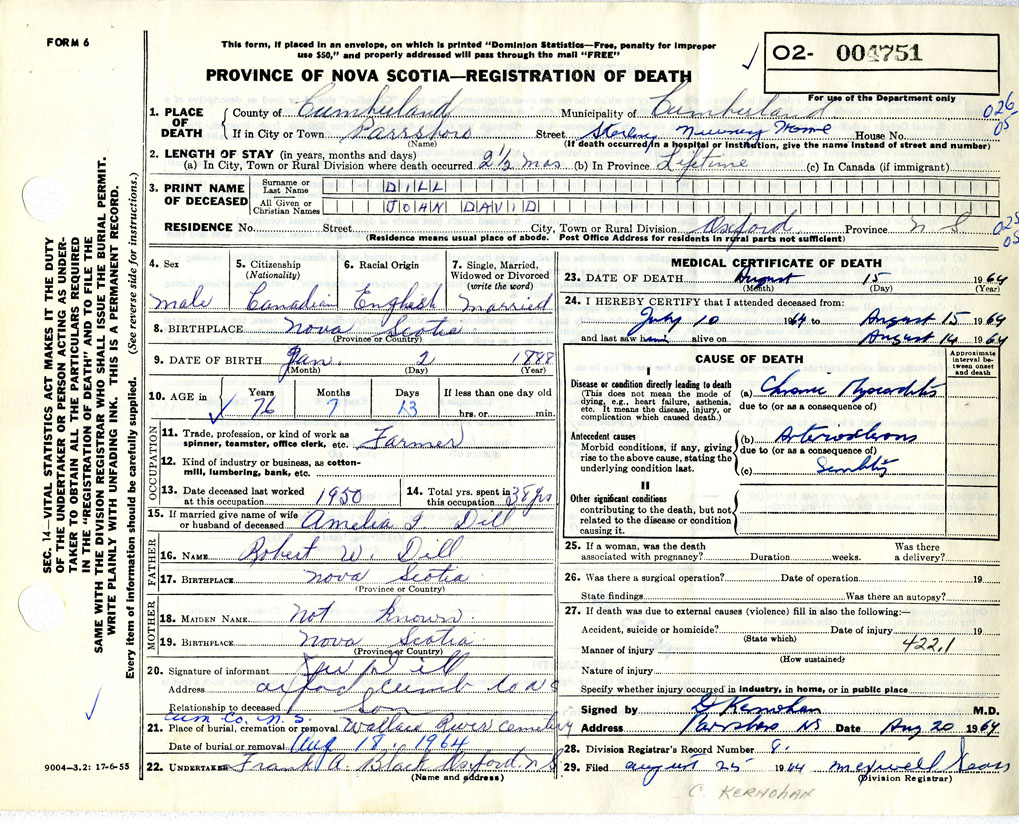 FORM 6
This form, if placed in an envelope, on which is printed "Dominion Statistics—Free, penalty for improper
use $50," and properly addressed will pass through the mail "FREE"
PROVINCE OF NOVA SCOTIA—REGISTRATION OF DEATH
02- 004751
For use of the Department only
026
05
1. PLACE OF DEATH
County of Cumberland Municipality of Cumberland
If in City or Town Parrsboro Street Nursing Home House No.
(Name) (If death occurred in a hospital or institution, give the name instead of street and number)
2. LENGTH OF STAY (in years, months and days)
(a) In City, Town or Rural Division where death occurred 2½ mos (b) In Province Lifetime (c) In Canada (if immigrant)
3. PRINT NAME OF DECEASED
Surname or Last Name DILL
All Given or Christian Names JOHN DAVID
RESIDENCE No. Street City, Town or Rural Division Oxford Province N S
025
05
(Residence means usual place of abode. Post Office Address for residents in rural parts not sufficient)
4. Sex
male
5. Citizenship
(Nationality)
Canadian
6. Racial Origin
English
7. Single, Married,
Widowed or Divorced
(write the word)
married
8. BIRTHPLACE Nova Scotia
(Province or Country)
9. DATE OF BIRTH Jan. 2 1888
(Month) (Day) (Year)
10. AGE in Years Months Days If less than one day
76 7 13 hrs. or min.
OCCUPATION
11. Trade, profession, or kind of work as
spinner, teamster, office clerk, etc. Farmer
12. Kind of industry or business, as cotton-
mill, lumbering, bank, etc.
13. Date deceased last worked
at this occupation. 1950
14. Total yrs. spent in
this occupation 38 yrs
15. If married give name of wife
or husband of deceased Amelia J. Dill
FATHER
16. NAME Robert W. Dill
17. BIRTHPLACE Nova Scotia
(Province or Country)
MOTHER
18. MAIDEN NAME not known
19. BIRTHPLACE Nova Scotia
(Province or Country)
20. Signature of informant Dill
Address Oxford Cumb Co NS
Relationship to deceased son
Cum Co. N. S.
21. Place of burial, cremation or removal Wallace River Cemetery
Date of burial or removal Aug 18, 1964
22. UNDERTAKER Frank A. Black Oxford. N S
(Name and address)
MEDICAL CERTIFICATE OF DEATH
23. DATE OF DEATH August 15 1964
(Month) (Day) (Year)
24. I HEREBY CERTIFY that I attended deceased from:
July 10 1964 to August 15 1964
and last saw him alive on August 14 1964
CAUSE OF DEATH
Approximate
interval be-
tween onset
and death
I
Disease or condition directly leading to death
(This does not mean the mode of
dying, e.g., heart failure, asthenia,
etc. It means the disease, injury, or
complication which caused death.)
(a) Chronic Myocarditis
due to (or as a consequence of)
Antecedent causes
Morbid conditions, if any, giving
rise to the above cause, stating the
underlying condition last.
(b)
due to (or as a consequence of)
(c) Senility
II
Other significant conditions
contributing to the death, but not
related to the disease or condition
causing it.
25. If a woman, was the death
associated with pregnancy? Duration weeks. Was there
a delivery?
26. Was there a surgical operation? Date of operation 19
State findings Was there an autopsy?
27. If death was due to external causes (violence) fill in also the following:—
Accident, suicide or homicide? Date of injury 19
(State which)
Manner of injury 422.1
(How sustained)
Nature of injury
Specify whether injury occurred in industry, in home, or in public place
Signed by D Kernohan M.D.
Address Parrsboro NS Date Aug 20 1964
28. Division Registrar's Record Number 8.
29. Filed August 25 1964
(Division Registrar)
C. KERNOHAN
SEC. 14—VITAL STATISTICS ACT MAKES IT THE DUTY
OF THE UNDERTAKER OR PERSON ACTING AS UNDER-
TAKER TO OBTAIN ALL THE PARTICULARS REQUIRED
IN THE "REGISTRATION OF DEATH" AND TO FILE THE
SAME WITH THE DIVISION REGISTRAR WHO SHALL ISSUE THE BURIAL PERMIT.
WRITE PLAINLY WITH UNFADING INK. THIS IS A PERMANENT RECORD.
Every item of information should be carefully supplied. (See reverse side for instructions.)
9004-3.2: 17-6-55